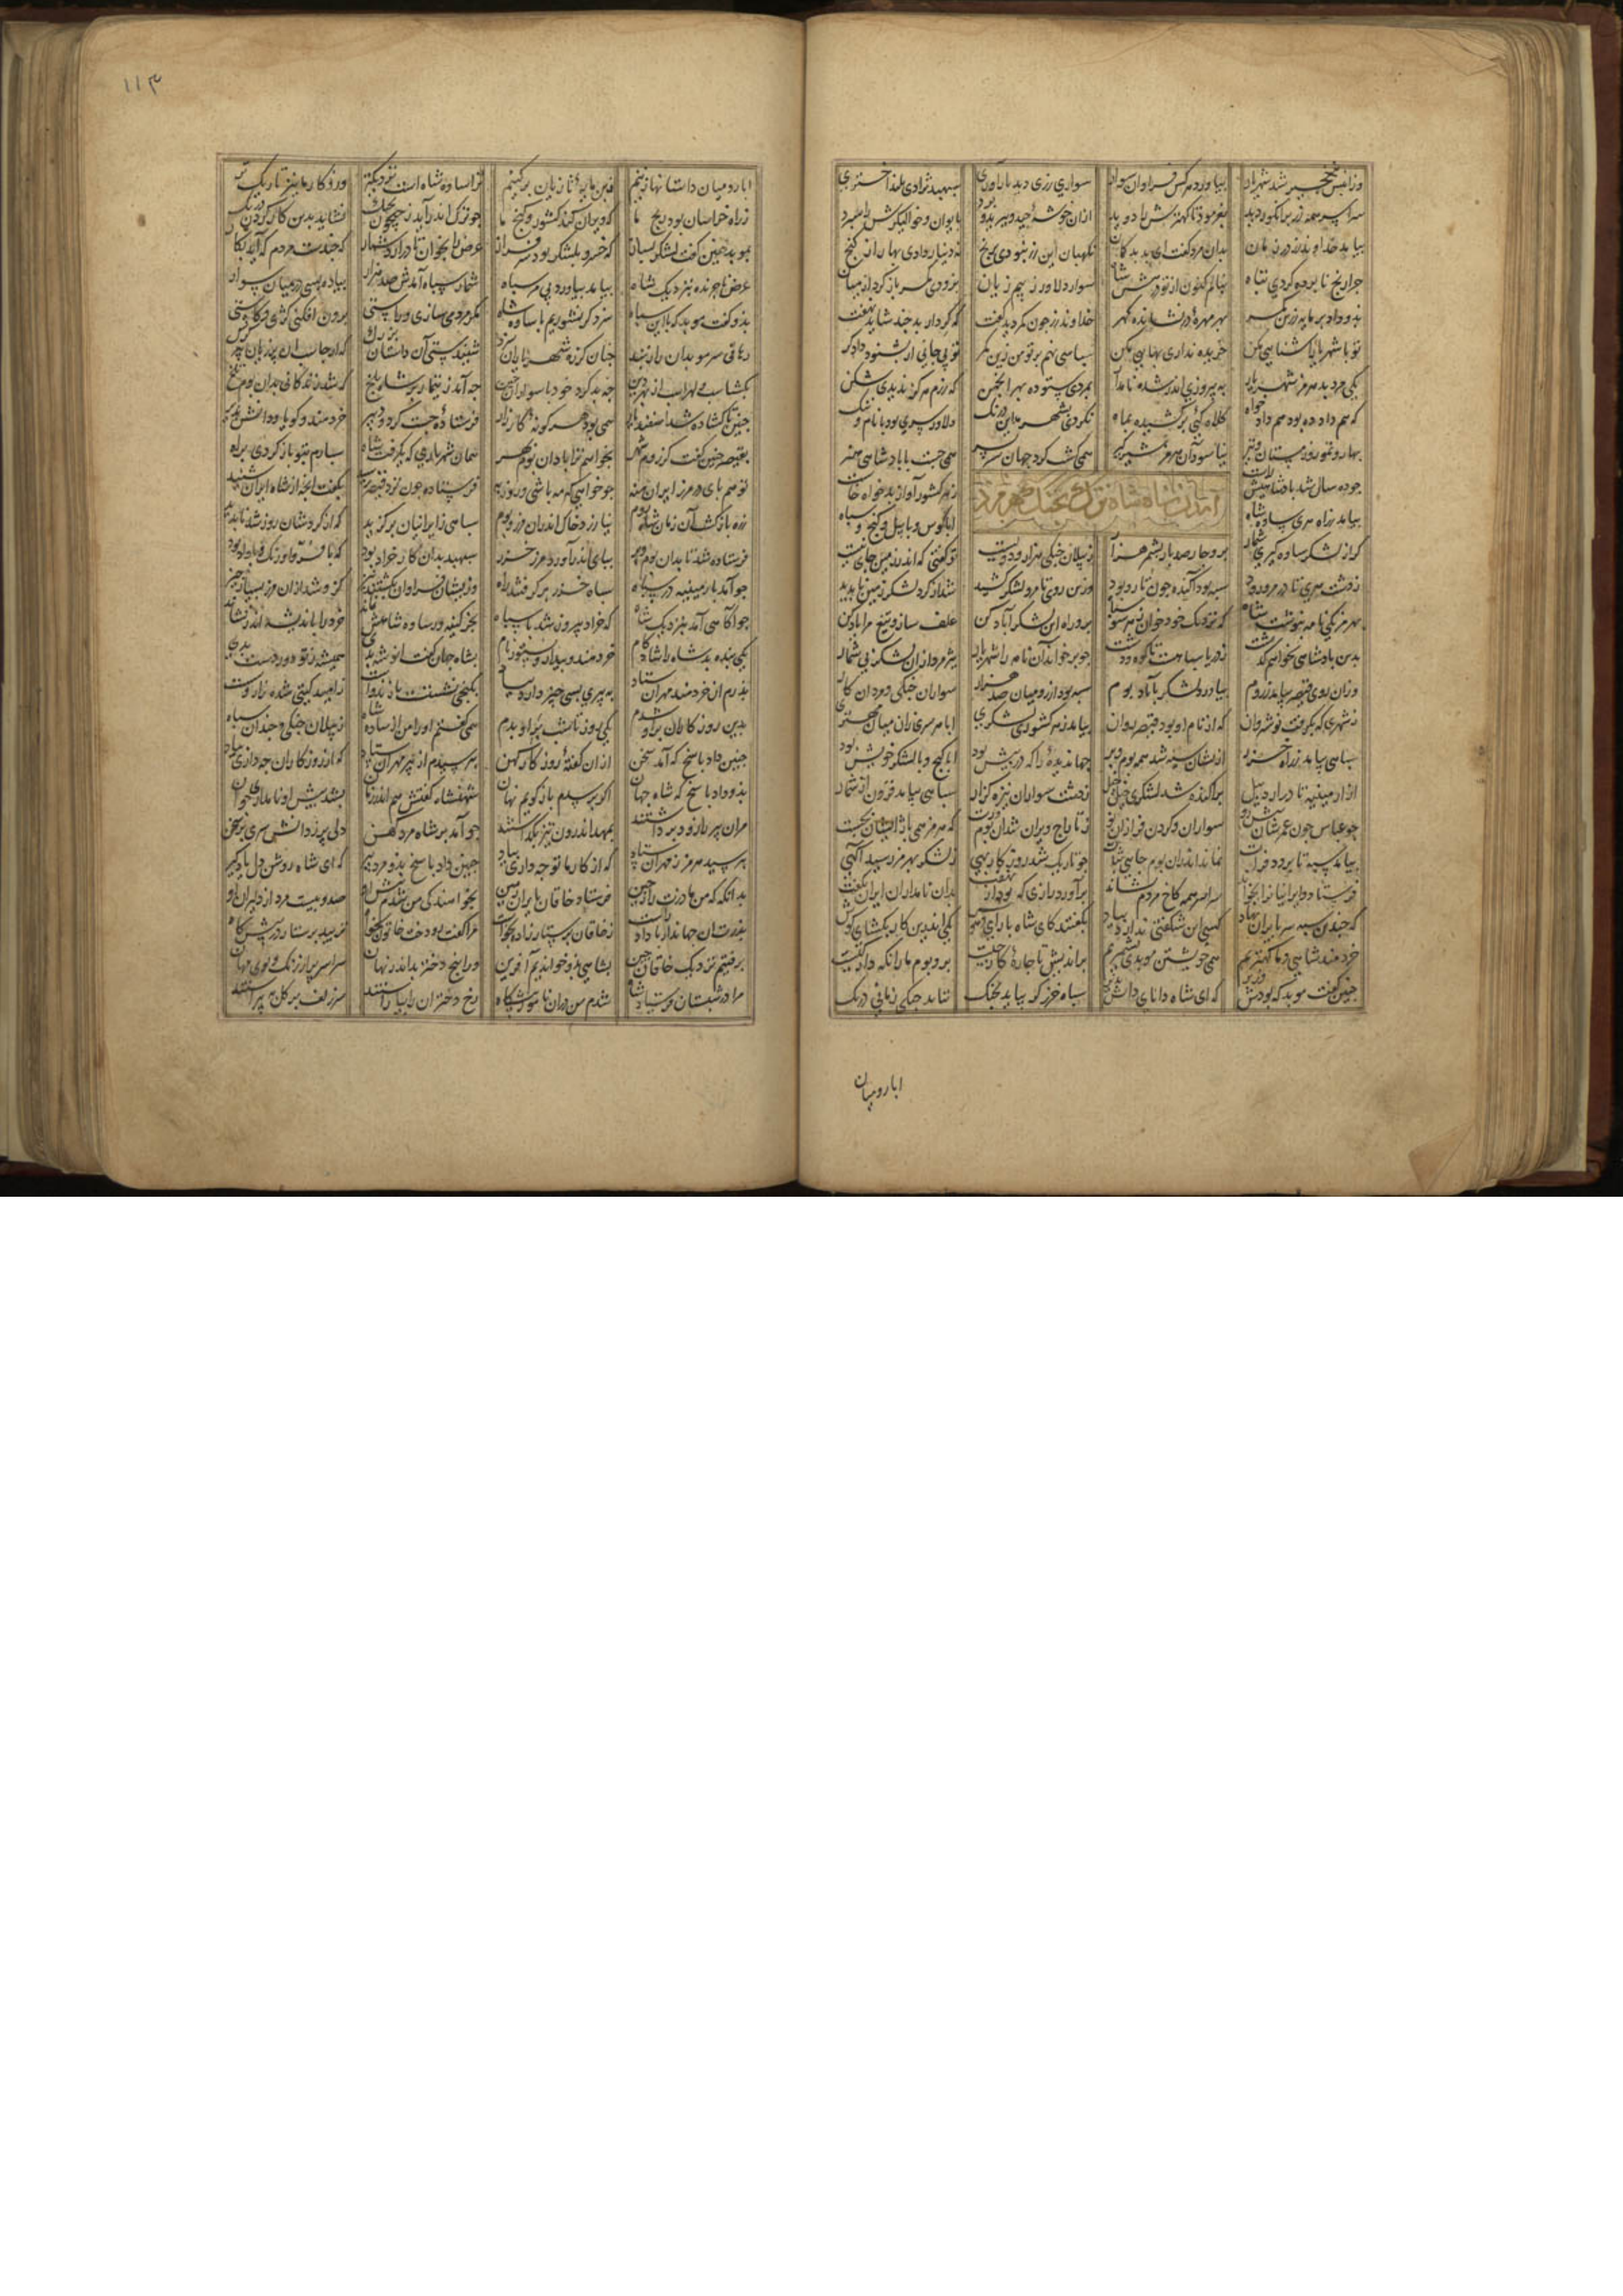 وزانپس بنخچیر شد شهریار بیاورد هر کس فراوان سوار سواری رزی دید بارآوری سپهبد نژادی بلند اختری
سراسر همه رز پر انگور دید بفرمود تا کهترش را دوید ازان خوشهٔ چید و ببرید و برد بایوان و خوالیگرش را سپرد
بیامد خداوند رز در زمان بدان مرد گفت ای بد بدگمان نگهبان این رز نبودی برنج نه دینار دادی بها را ز گنج
چرا رنج نابرده کردی تباه بنالم کنون از تو در پیش شاه سوار دلاور ز بیم زیان بزودی کمر باز کرد از میان
بدو داد پرمایه زرین کمر بهر مهرهٔ در نشانده گهر خداوند رز چون کمر دید گفت که کردار بد چند شاید نهفت
تو با شهریار آشنایی مکن خریده نداری بهایی مکن سپاسی نهم بر تو من زین کمر تو بی جانی ار بشنود دادگر
یکی مرد بد هرمز شهریار به پیروزی اندر شده نامدار بمردی ستوده بهر انجمن که رزم هرگز ندیدی شکن
که هم داد ده بود هم داد خواه کلاه کئی برکشیده بماه نکردی بشهر مداین درنگ دلاور سری بود با نام و ننگ
بهار و تموز و زمستان و تیر نیاسود آن هرمز شیرگیر همی گشت گرد جهان سربسر همی جست با پادشاهی هنر
چو ده سال شد پادشاهیش راست ز هر کشور آواز بدخواه خاست
آمدن ساوه شاه ترک بجنگ هرمزد
بیامد ز راه هری ساوه شاه ابا کوس و با پیل و گنج و سپاه
گر از لشکر ساوه گیری شمار برو چارصد بار بشمر هزار ز پیلان جنگی هزار و دویست تو گفتی که اندر زمین جای نیست
ز دشت هری تا در مرورود سپه بود آکنده چون تار و پود وزین روی تا مرو لشکر کشید شد از گرد لشکر زمین ناپدید
بهرمز یکی نامه بنوشت شاه که نزدیک خود خوان ز هر سو سپاه برو راه این لشکر آباد کن علف ساز و تیغ مرا یاد کن
بدین پادشاهی بخواهم گذشت ز دریا سپاهست تا کوه و دشت چو برخواند آن نامه را شهریار بپژمرد ازان لشکر بی شمار
وزان روی قیصر بیامد ز روم بیاورد لشکر بآباد بوم سپه بود از رومیان صد هزار سواران جنگی و مردان کار
ز شهری که بگرفت نوشروان که از نام او بود قیصر نوان بیامد ز هر کشوری لشکری ابا هر سری زان میان مهتری
سپاهی بیامد ز راه خزر ازیشان سیه شد همه بوم و بر جهاندیدهٔ را که در پیش بود ابا گنج و با لشکر خویش بود
از ارمینیه تا در اردبیل پراکنده شد لشکری خیل خیل ز دشت سواران نیزه گزار سپاهی بیامد فزون از شمار
چو عباس و چون عمر شان پیش رو سواران و گردن فرازان نو ز تاراج ویران شد آن بوم و رست که هرمز همی باژ ایشان بجست
بیامد سپه تا برود فرات نماند اندران بوم جای نبات چو تاریک شد روزگار بهی ز لشکر بهرمز رسید آگهی
فرستاد و ایرانیان را بخواند سراسر همه کاخ مردم نشاند برآورد رازی که بود از نهفت بدان نامداران ایران بگفت
که چندین سپه سر بایران نهاد کسی این شگفتی ندارد بیاد بگفتند کای شاه با رای و هوش یکی اندرین کار بگشای گوش
خردمند شاهی و ما کهتریم همی خویشتن موبدی نشمریم براندیش تا چارهٔ کار چیست بر و بوم ما را نگه دار کیست
چنین گفت موبد که بودش وزیر که ای شاه دانای دانش پذیر سپاه خزر گر بیاید بجنگ نتابد جنگی زمانی درنگ
ابا رومیان
۱۱۳
ابا رومیان داستانها زنیم ز بن پایهٔ تازیان برکنیم ترا ساوه شاه است نزدیکتر وزو کار ما نیز تاریک تر
ز راه خراسان بود رنج ما که ویران کند کشور و گنج ما چو ترک اندر آید ز جیحون بجنگ نشاید بدین کار کردن درنگ
بموبد چنین گفت لشکر بساز که خسرو بلشکر بود سرفراز عرض را بخوان تا درآرد شمار که چندست مردم که آید بکار
عرض با جریده بنزدیک شاه بیامد بیاورد بی مر سپاه شمار سپاه آمدش صد هزار پیاده بسی در میان سوار
بدو گفت موبد که با این سپاه سزد گر نشوریم با ساوه شاه مگر مردمی سازی و راستی برون افکنی کژی و کاستی
رهانی سر موبدان را ز بند چنان کز ره شهریاران سزد شنیدستی آن داستان بزرگ که ارجاسب آن پرزیان پیر گرگ
بگشتاسب و لهراسب از بهر دین چه بد کرد خود با سواران چین چه آمد ز تیمار بر شاه بلخ که شد زندگانی بدان بوم تلخ
چنین تا گشاده شد اسفندیار همی بود هر گونهٔ کارزار فرستادهٔ جست گرد و دبیر خردمند و گویا و دانش پذیر
بقیصر چنین گفت کز روم شهر بخواهم ترا باد ازان بوم بهر همان شهرها را که بگرفت شاه سپارم بتو باز گردی ز راه
تو هم پای در مرز ایران منه چو خواهی که مه باشی و روزبه فرستاده چون نزد قیصر رسید بگفت آنچه از شاه ایران شنید
ز ره بازگشت آن زمان شاه روم نیازرد خاک اندران مرز و بوم سپاهی ز ایرانیان برگزید که از گردشان روز شد ناپدید
فرستاده شد تا بدان بوم و بر بپای اندر آورد مرز خزر سپهبد بدان کار خراد بود که با فر و اورنگ و با داد بود
چو آمد بارمینیه در سپاه سپاه خزر برگرفتند راه وزیشان فراوان بکشتند نیز گرفتند ازان مرز بسیار چیز
چو آگاهی آمد بنزدیک شاه که خراد پیروز شد با سپاه بجز کینهٔ ساوه شاهش نماند خرد را باندیشه اندر نشاند
یکی بنده بد شاه را شادکام خردمند و بیدار و نستوه نام بشاه جهان گفت انوشه بدی همیشه ز تو دور دست بدی
پدرم آن خردمند مهران ستاد به پیری بسی چیز دارد بیاد بکنجی نشستست با زند و است ز امید گیتی شده
بدین روزگاران بر او شدم یکی روز تا شب بر او بدم همی گفتم او را من از ساوه شاه ز پیلان جنگی و چندان سپاه
چنین داد پاسخ که آمد سخن ازان گفتهٔ روزگار کهن بپرسیدم از پیر مهران ستاد که از روزگاران چه داری بیاد
بدو داد پاسخ که شاه جهان اگر پرسدم بازگویم نهان شهنشاه گفتش هم اندر زمان بشد پیش او نامداری جوان
مران پیر را زود برداشتند بمهد اندرون تیز بگذاشتند چو آمد بر شاه مرد کهن دلی پر ز دانش سری پر سخن
بپرسید هرمز ز مهران ستاد که از کارها تو چه داری بیاد چنین داد پاسخ بدو مرد پیر که ای شاه روشن دل یادگیر
بدانگه که من مادرت را ز چین فرستاد خاقان بایران زمین بخواهندگی من شدم پیش رو صد و بیست مرد از دلیران گو
پدرت آن جهاندار با داد و راست ز خاقان پرستار زاده نخواست مرا گفت بجز دخت خاتون مخواه نزیبد پرستار در پیش گاه
برفتیم نزدیک خاقان چین بشاهی برو خواندیم آفرین ورا پنج دختر بد اندر نهان سراسر پر از رنگ و بوی مهان
مرا در شبستان فرستاد شاه شدم من دران نامور پیشگاه رخ دختران را بیاراستند سر زلف بر گل بپیراستند